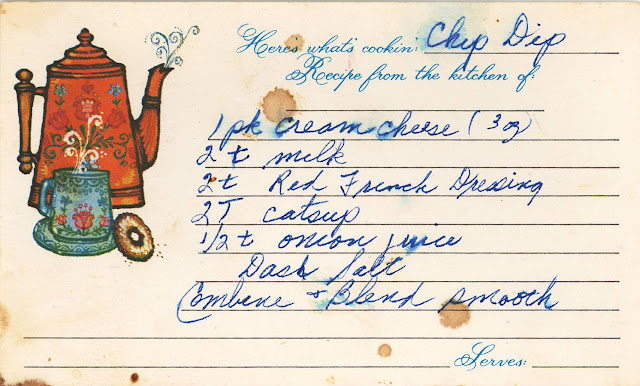 Here's what's cookin: Chip Dip
Recipe from the kitchen of:
1 pk cream cheese (3 oz)
2 t milk
2 t Red French Dressing
2T catsup
1/2 t onion juice
Dash Salt
Combine & Blend smooth
Serves: